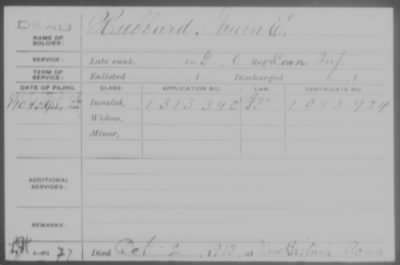 DEAD
NAME OF SOLDIER: Hubbard, Irwin E.
SERVICE: Late rank, Co. Reg't Conn Inf.
TERM OF SERVICE: Enlisted , 1 Discharged , 1
DATE OF FILING. CLASS. APPLICATION NO. LAW. CERTIFICATE NO.
Invalid, 1313340 1083924
Widow,
Minor,
ADDITIONAL SERVICES:
REMARKS:
Died Oct 2 at New Britain Conn